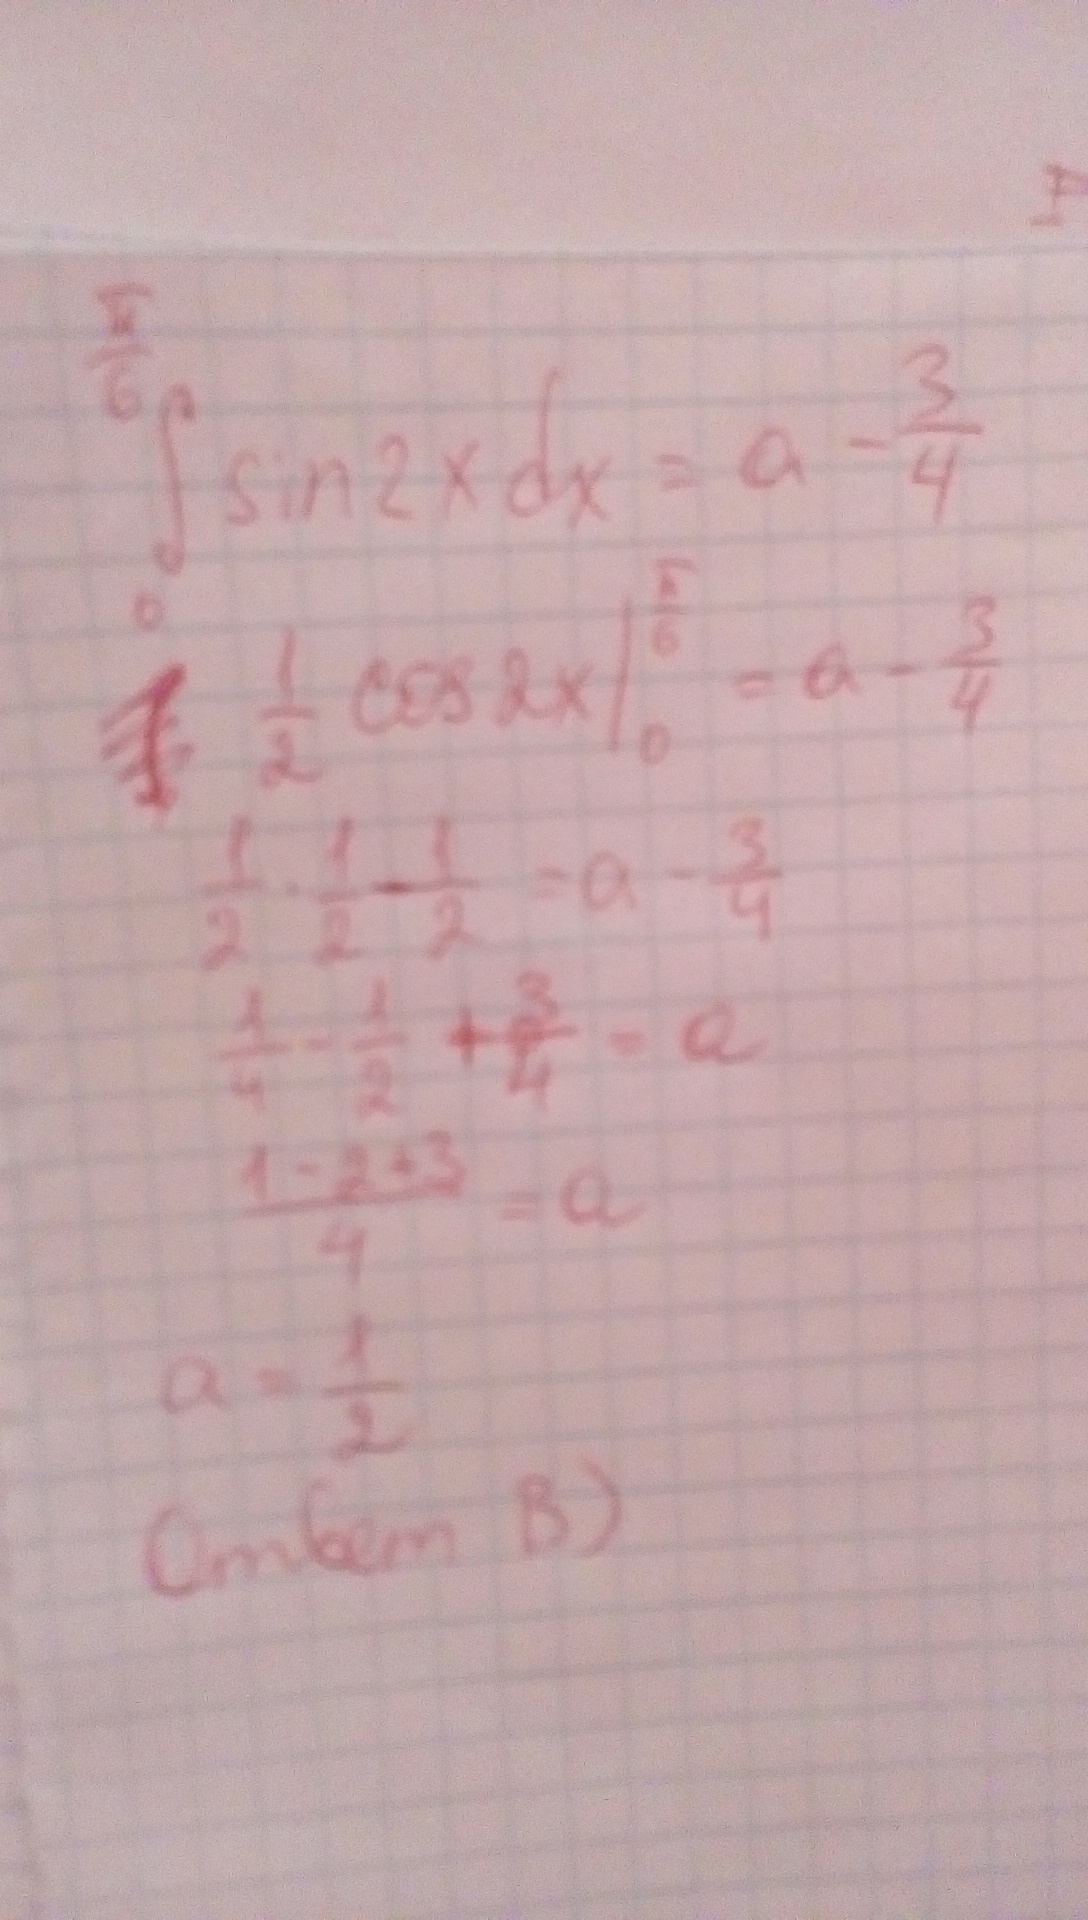 ∫₀^(π/6) sin2xdx = a - 3/4
1/2 cos2x|₀^(π/6) = a - 3/4
1/2 · 1/2 - 1/2 = a - 3/4
1/4 - 1/2 + 3/4 = a
(1-2+3)/4 = a
a = 1/2
Ответ В)